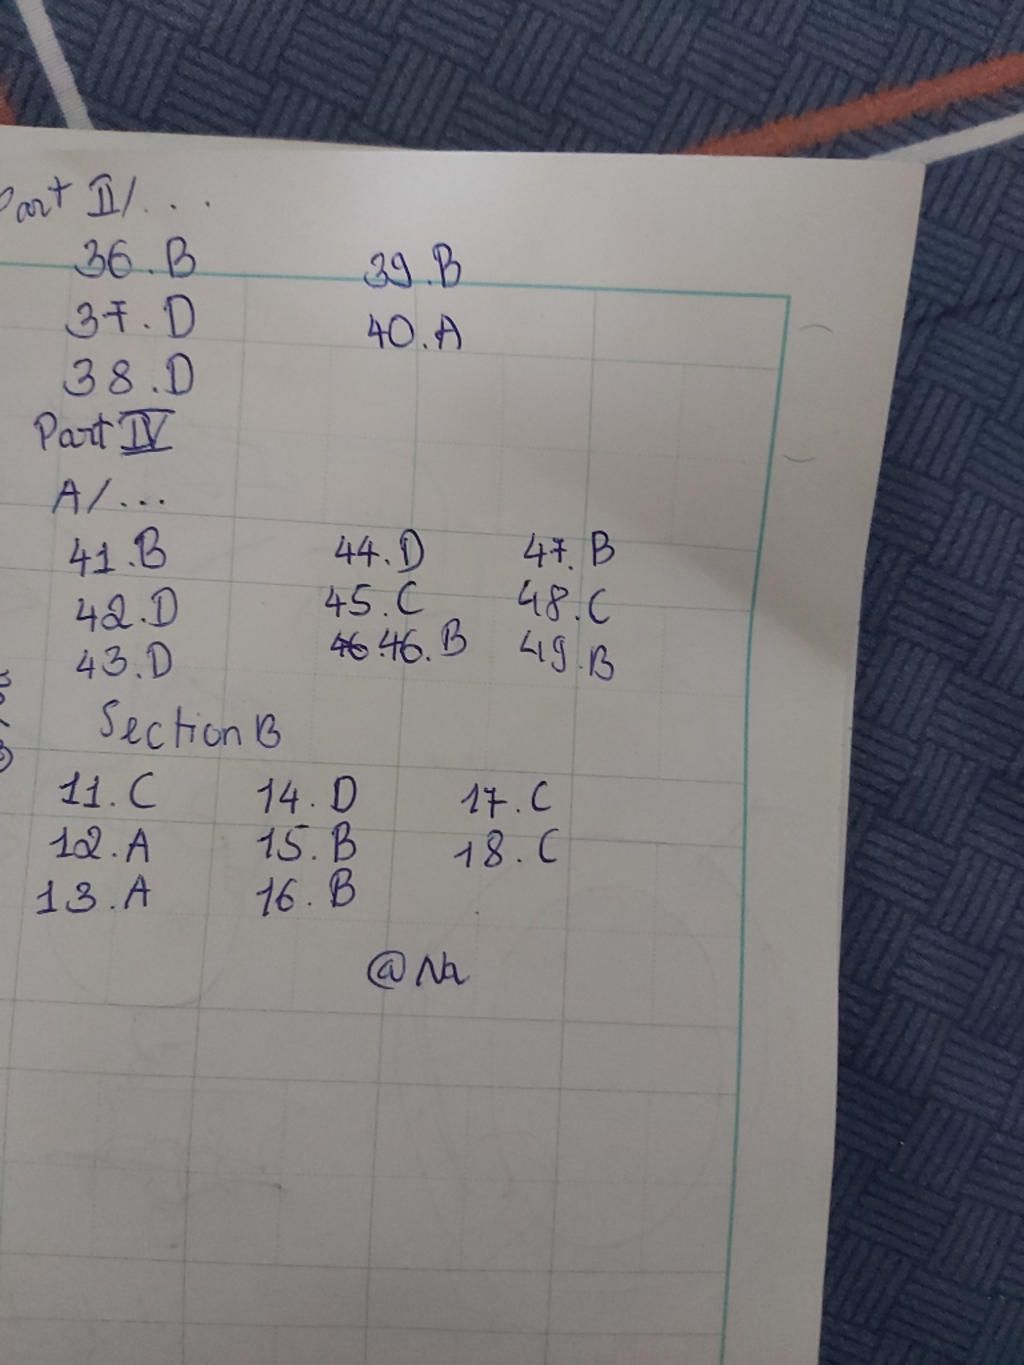 Part II/...
36.B 39.B
37.D 40.A
38.D
Part IV
A/...
41.B 44.D 47.B
42.D 45.C 48.C
43.D 46.B 49.B
Section B
11.C 14.D 17.C
12.A 15.B 18.C
13.A 16.B
@Na